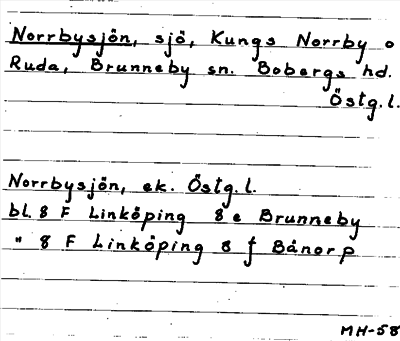 Norrbysjön, sjö, Kungs Norrby o
Ruda, Brunneby sn. Bobergs hd.
Östg.l.
Norrbysjön, ek. Östg.l.
bl. 8 F Linköping 8 e Brunneby
" 8 F Linköping 8 f Bånorp
MH-58